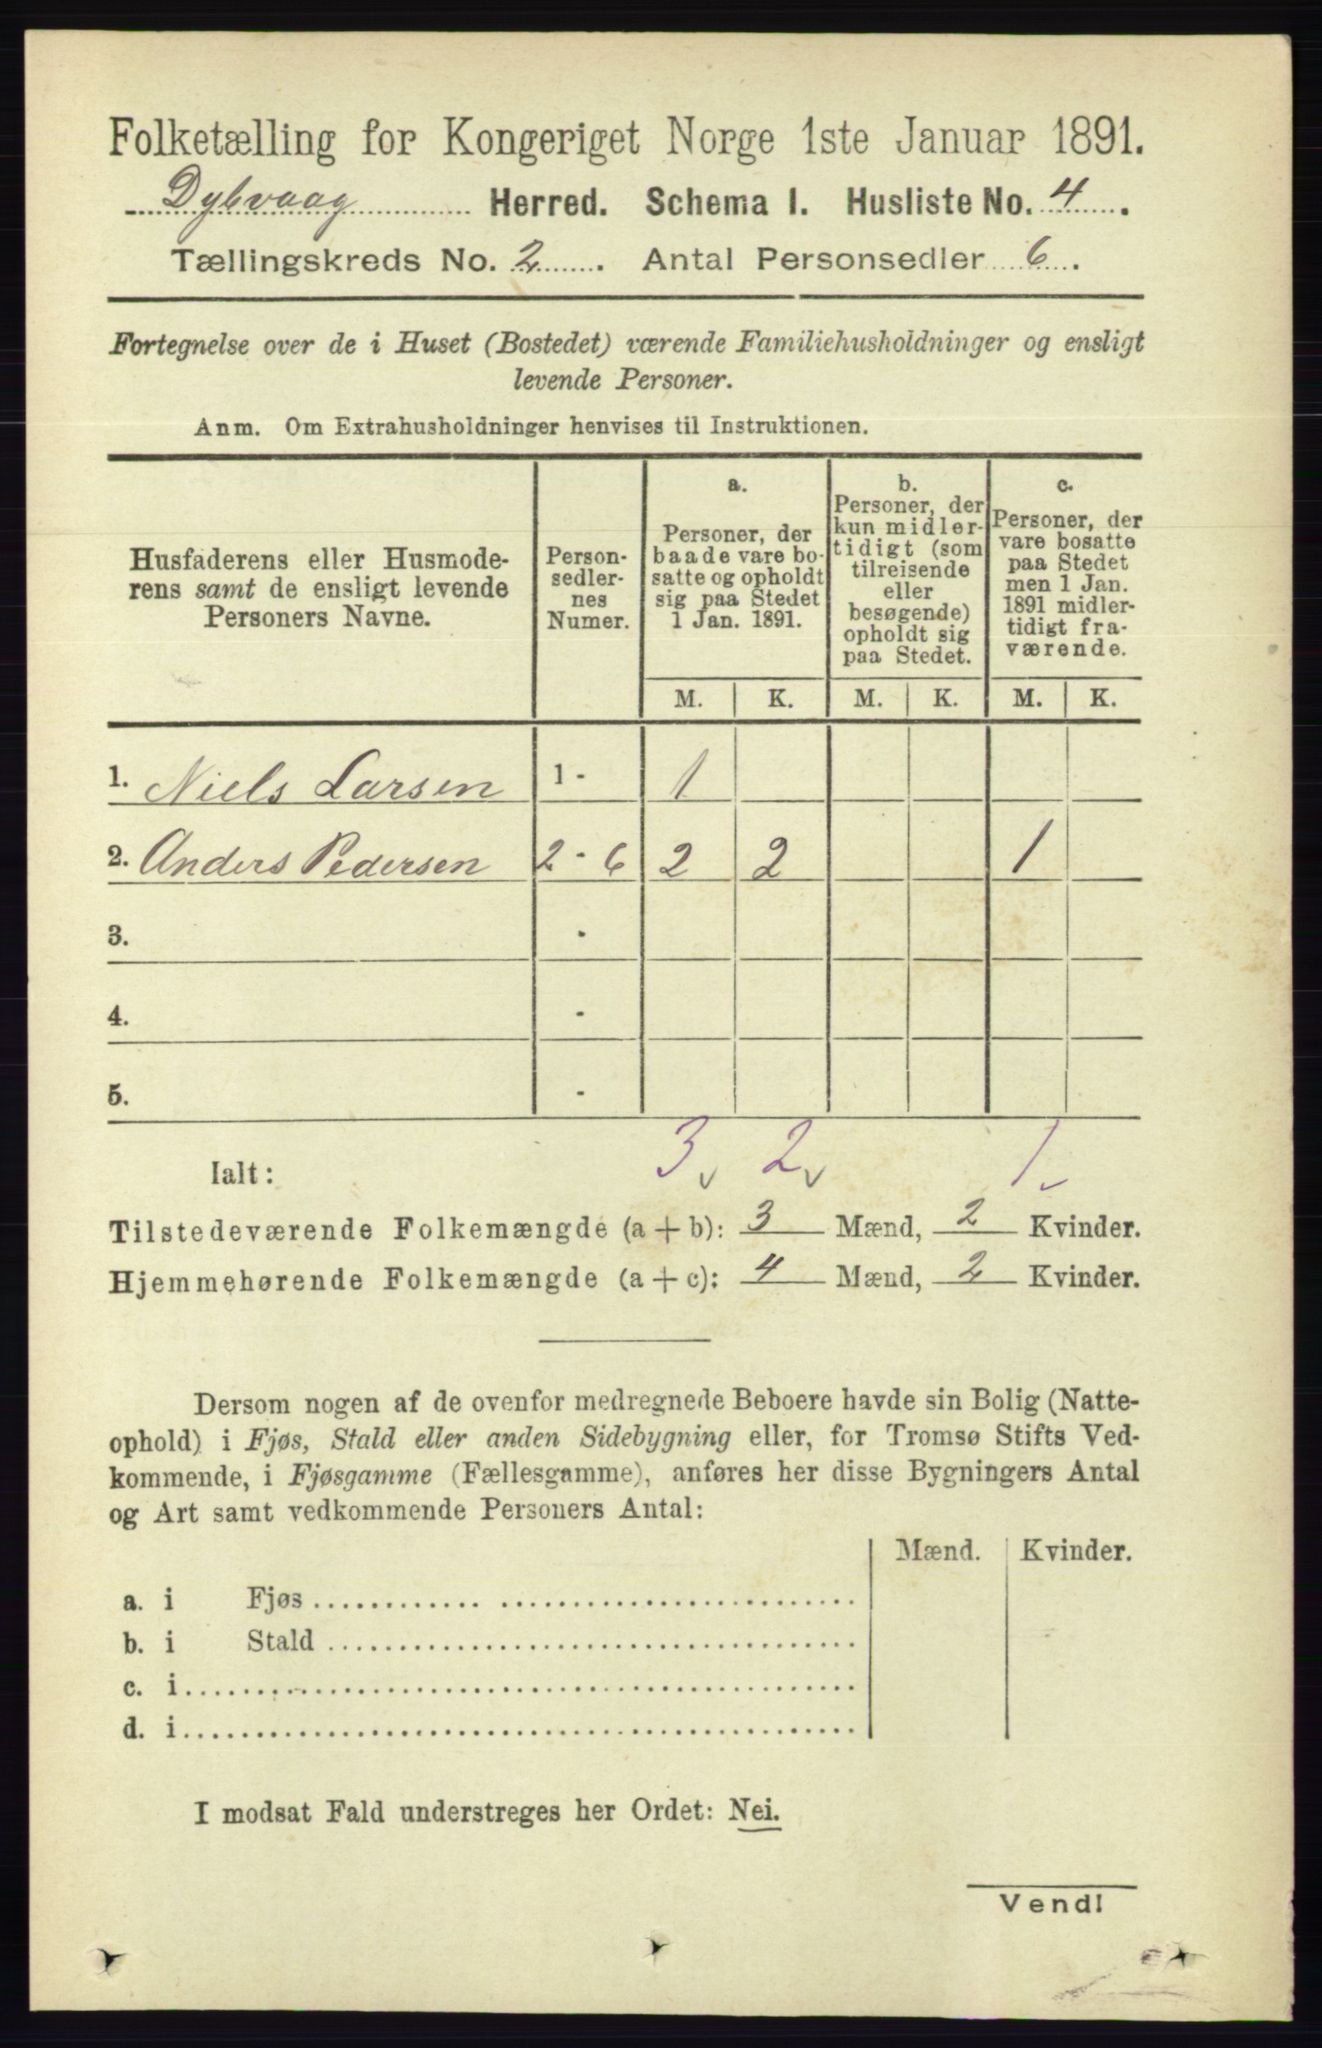 Folketælling for Kongeriget Norge 1ste Januar 1891.
Dybvaag Herred. Schema I. Husliste No. 4.
Tællingskreds No. 2. Antal Personsedler 6.
Fortegnelse over de i Huset (Bostedet) værende Familiehusholdninger og ensligt
levende Personer.
Anm. Om Extrahusholdninger henvises til Instruktionen.
Husfaderens eller Husmode-
rens samt de ensligt levende
Personers Navne.
Person-
sedler-
nes
Numer.
a.
Personer, der
baade vare bo-
satte og opholdt
sig paa Stedet
1 Jan. 1891.
b.
Personer, der
kun midler-
tidigt (som
tilreisende
eller
besøgende)
opholdt sig
paa Stedet.
c.
Personer, der
vare bosatte
paa Stedet
men 1 Jan.
1891 midler-
tidigt fra-
værende.
M. K. M. K. M. K.
1. Niels Larsen 1 - 1
2. Anders Pedersen 2 - 6 2 2 1
3. -
4. -
5. -
Ialt: 3 2 1
Tilstedeværende Folkemængde (a + b): 3 Mænd, 2 Kvinder.
Hjemmehørende Folkemængde (a + c): 4 Mænd, 2 Kvinder.
Dersom nogen af de ovenfor medregnede Beboere havde sin Bolig (Natte-
ophold) i Fjøs, Stald eller anden Sidebygning eller, for Tromsø Stifts Ved-
kommende, i Fjøsgamme (Fællesgamme), anføres her disse Bygningers Antal
og Art samt vedkommende Personers Antal:
Mænd. Kvinder.
a. i Fjøs
b. i Stald
c. i
d. i
I modsat Fald understreges her Ordet: Nei.
Vend!